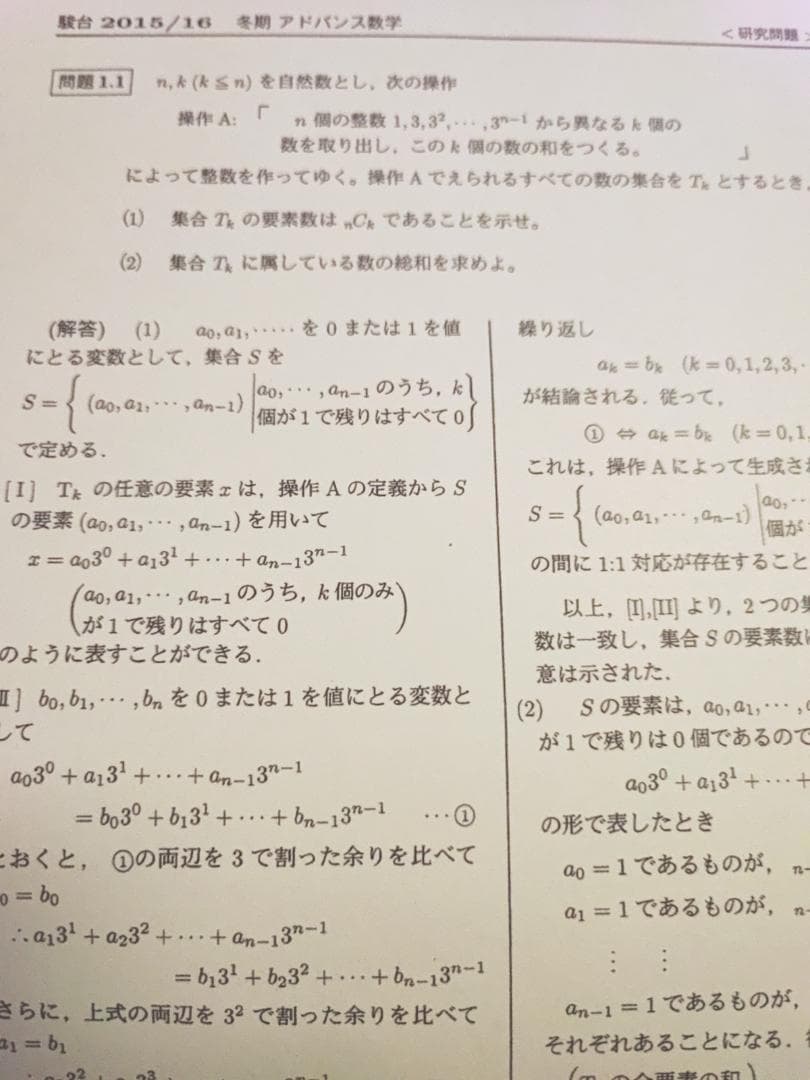 駿台 2015/16 冬期 アドバンス数学
＜研究問題＞
問題 1.1 n, k (k ≦ n) を自然数とし，次の操作
操作 A: 「 n 個の整数 1, 3, 3², ⋯ , 3ⁿ⁻¹ から異なる k 個の
数を取り出し，この k 個の数の和をつくる。 」
によって整数を作ってゆく。操作 A でえられるすべての数の集合を Tₖ とするとき，
(1) 集合 Tₖ の要素数は ₙCₖ であることを示せ。
(2) 集合 Tₖ に属している数の総和を求めよ。
(解答) (1) a₀, a₁, ⋯⋯ を 0 または 1 を値
にとる変数として，集合 S を
S = { (a₀, a₁, ⋯ , aₙ₋₁) | a₀, ⋯ , aₙ₋₁ のうち，k
個が 1 で残りはすべて 0 }
で定める．
[I] Tₖ の任意の要素 x は，操作 A の定義から S
の要素 (a₀, a₁, ⋯ , aₙ₋₁) を用いて
x = a₀3⁰ + a₁3¹ + ⋯ + aₙ₋₁3ⁿ⁻¹
(a₀, a₁, ⋯ , aₙ₋₁ のうち，k 個のみ
が 1 で残りはすべて 0)
のように表すことができる．
II] b₀, b₁, ⋯ , bₙ を 0 または 1 を値にとる変数と
して
a₀3⁰ + a₁3¹ + ⋯ + aₙ₋₁3ⁿ⁻¹
= b₀3⁰ + b₁3¹ + ⋯ + bₙ₋₁3ⁿ⁻¹ ⋯①
とおくと，①の両辺を 3 で割った余りを比べて
₀ = b₀
∴ a₁3¹ + a₂3² + ⋯ + aₙ₋₁3ⁿ⁻¹
= b₁3¹ + b₂3² + ⋯ + bₙ₋₁3ⁿ⁻¹
さらに，上式の両辺を 3² で割った余りを比べて
a₁ = b₁
繰り返し
aₖ = bₖ (k = 0, 1, 2, 3, ⋅
が結論される．従って，
① ⇔ aₖ = bₖ (k = 0, 1,
これは，操作 A によって生成さ
S = { (a₀, a₁, ⋯ , aₙ₋₁) | a₀, ⋯
個が
の間に 1:1 対応が存在すること
以上，[I],[II] より，2 つの集
数は一致し，集合 S の要素数は
意は示された．
(2) S の要素は，a₀, a₁, ⋯ ,
が 1 で残りは 0 個であるので
a₀3⁰ + a₁3¹ + ⋯ +
の形で表したとき
a₀ = 1 であるものが， ₙ₋
a₁ = 1 であるものが， ₙ₋
⋮ ⋮
aₙ₋₁ = 1 であるものが，
それぞれあることになる．
の全要素の和